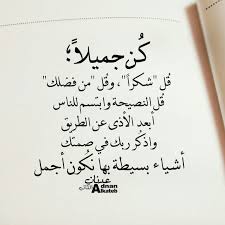 كُن جميلاً؛
قُل "شكراً"، وقُل "من فضلك"
قل النصيحة وابتسم للناس
أبعد الأذى عن الطريق
واذكر ربك في صمتك
أشياء بسيطة بها نكُون أجمل
عدنان
Adnan
Alkateb